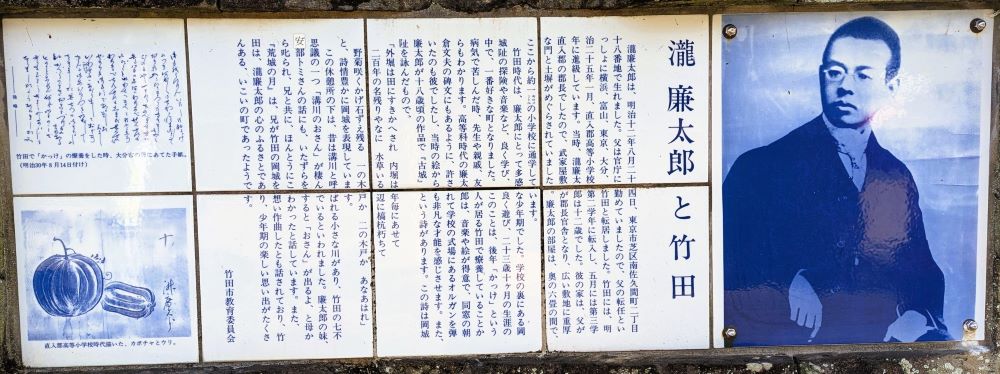 瀧廉太郎と竹田
瀧廉太郎は、明治十二年八月二十四日、東京市芝区南佐久間町二丁目
十八番地で生れました。父は官庁に勤めていましたので、父の転任とい
っしょに横浜、富山、東京、大分、竹田と転居しました。竹田には、明
治二十五年一月、直入郡高等小学校第二学年に転入し、五月には第三学
年に進級しています。当時、瀧廉太郎は十二歳でした。彼の家は、父が
直入郡の郡長でしたので、武家屋敷が郡長官舎となり、広い敷地に重厚
な門と土塀がめぐらされていました。廉太郎の部屋は、奥の六畳の間で、
ここから約一㎞の小学校に通学しています。
竹田時代は、廉太郎にとって多感な少年期でした。学校の裏にある岡
城阯の探険や音楽など、良く学び、良く遊び、二十三歳十ヶ月の生涯の
中で、一番好きな町となりました。このことは、後年「かっけ」という
病気で苦しんだ時、先生や親戚、友人が居る竹田で療養していることか
らもわかります。高等科時代の廉太郎は、音楽や絵が得意で、同窓の朝
倉文夫の碑文にもあるように、許されて学校の式場にあるオルガンを弾
いたのも彼でしたし、当時の絵からも非凡な才能を感じさせます。また、
廉太郎が十八歳頃の作品で「古城」という詩があります。この詩は岡城
阯を詠んだもので、
「外堀は田にすきかへされ 内堀は年毎にあせて
二百年の名残りやなに 水草いる辺に槁杭朽ちて
野菊咲くかげ石ずえ残る 一の木戸か 二の木戸か あなあはれ」
と、詩情豊かに岡城を表現しています。
この休憩所の下は、昔は溝川と呼ばれる小さな川があり、竹田の七不
思議の一つ「溝川のおさん」が棲んでいるといわれました。廉太郎の妹、
安部トミさんの話にも、いたずらをすると「おさん」が出るよ、と母か
ら叱られ、兄と共に、ほんとうにこわかったと話しています。また、
「荒城の月」は、兄が竹田の岡城を想い作曲したとも話されており、竹
田は、瀧廉太郎の心のふるさとであり、少年期の楽しい思い出がたくさ
んある、いこいの町であったようです。
竹田市教育委員会
竹田で「かっけ」の療養をした時、大分市の母にあてた手紙。
(明治30年8月14日付け)
直入郡高等小学校時代描いた、カボチャとウリ。